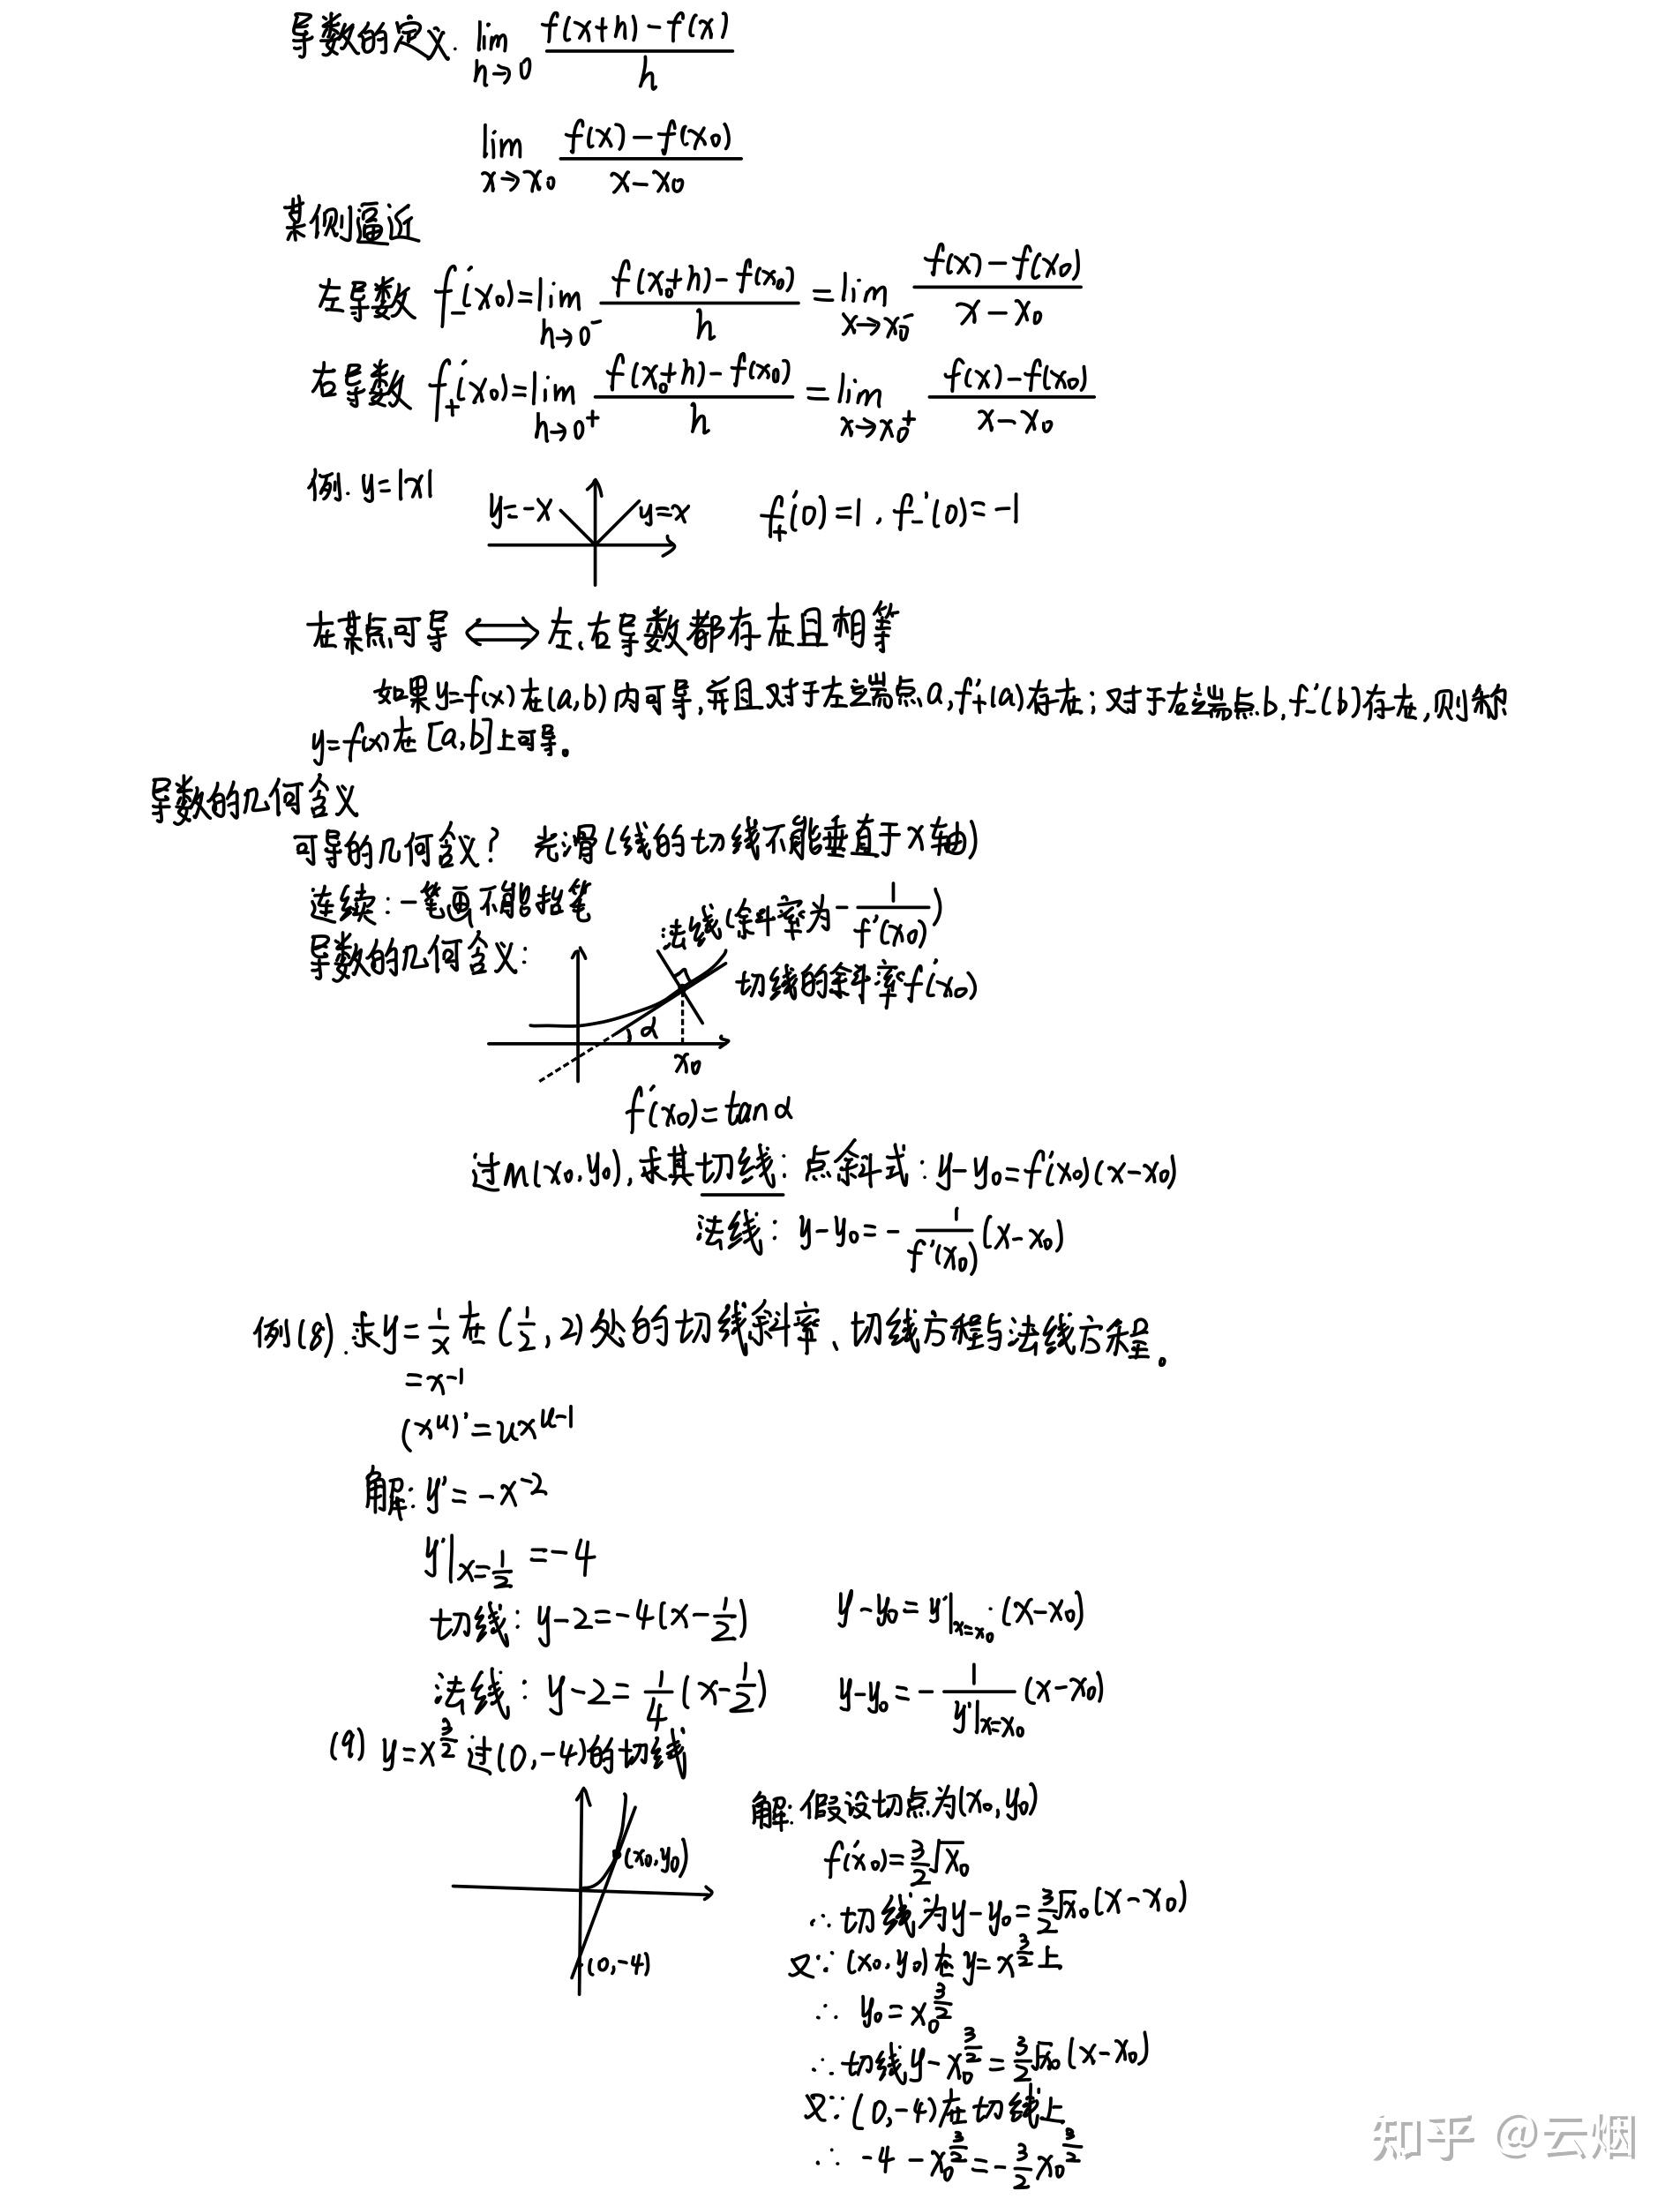 导数的定义. lim h→0 f(x+h)-f(x) / h
lim x→x₀ f(x)-f(x₀) / x-x₀
某侧逼近
左导数 f₋'(x₀)=lim h→0⁻ f(x₀+h)-f(x₀) / h = lim x→x₀⁻ f(x)-f(x₀) / x-x₀
右导数 f₊'(x₀)=lim h→0⁺ f(x₀+h)-f(x₀) / h = lim x→x₀⁺ f(x)-f(x₀) / x-x₀
例. y=|x|
y=-x y=x f₊'(0)=1, f₋'(0)=-1
在某点可导 ⟺ 左、右导数都存在且相等
如果y=f(x)在(a,b)内可导,并且对于左端点a,f₊'(a)存在;对于右端点b,f₋'(b)存在,则称
y=f(x)在[a,b]上可导。
导数的几何含义
可导的几何含义? 光滑(线的切线不能垂直于x轴)
连续:一笔画不能抬笔
法线(斜率为-1/f'(x₀))
导数的几何含义:
切线的斜率f'(x₀)
α
x₀
f'(x₀)=tanα
过m(x₀,y₀),求其切线:点斜式:y-y₀=f'(x₀)(x-x₀)
法线:y-y₀=-1/f'(x₀)(x-x₀)
例(8).求y=1/x在(1/2,2)处的切线斜率、切线方程与法线方程。
=x⁻¹
(xᵘ)'=uxᵘ⁻¹
解:y'=-x⁻²
y'|x=1/2=-4
切线:y-2=-4(x-1/2) y-y₀=y'|x=x₀·(x-x₀)
法线:y-2=1/4(x-1/2) y-y₀=-1/y'|x=x₀(x-x₀)
(9) y=x^(3/2)过(0,-4)的切线
(x₀,y₀)
(0,-4)
解:假设切点为(x₀,y₀)
f'(x₀)=3/2√x₀
∴切线为y-y₀=3/2√x₀(x-x₀)
又∵(x₀,y₀)在y=x^(3/2)上
∴ y₀=x₀^(3/2)
∴切线y-x₀^(3/2)=3/2√x₀(x-x₀)
又∵(0,-4)在切线上
∴ -4-x₀^(3/2)=-3/2x₀^(3/2)
知乎 @云烟